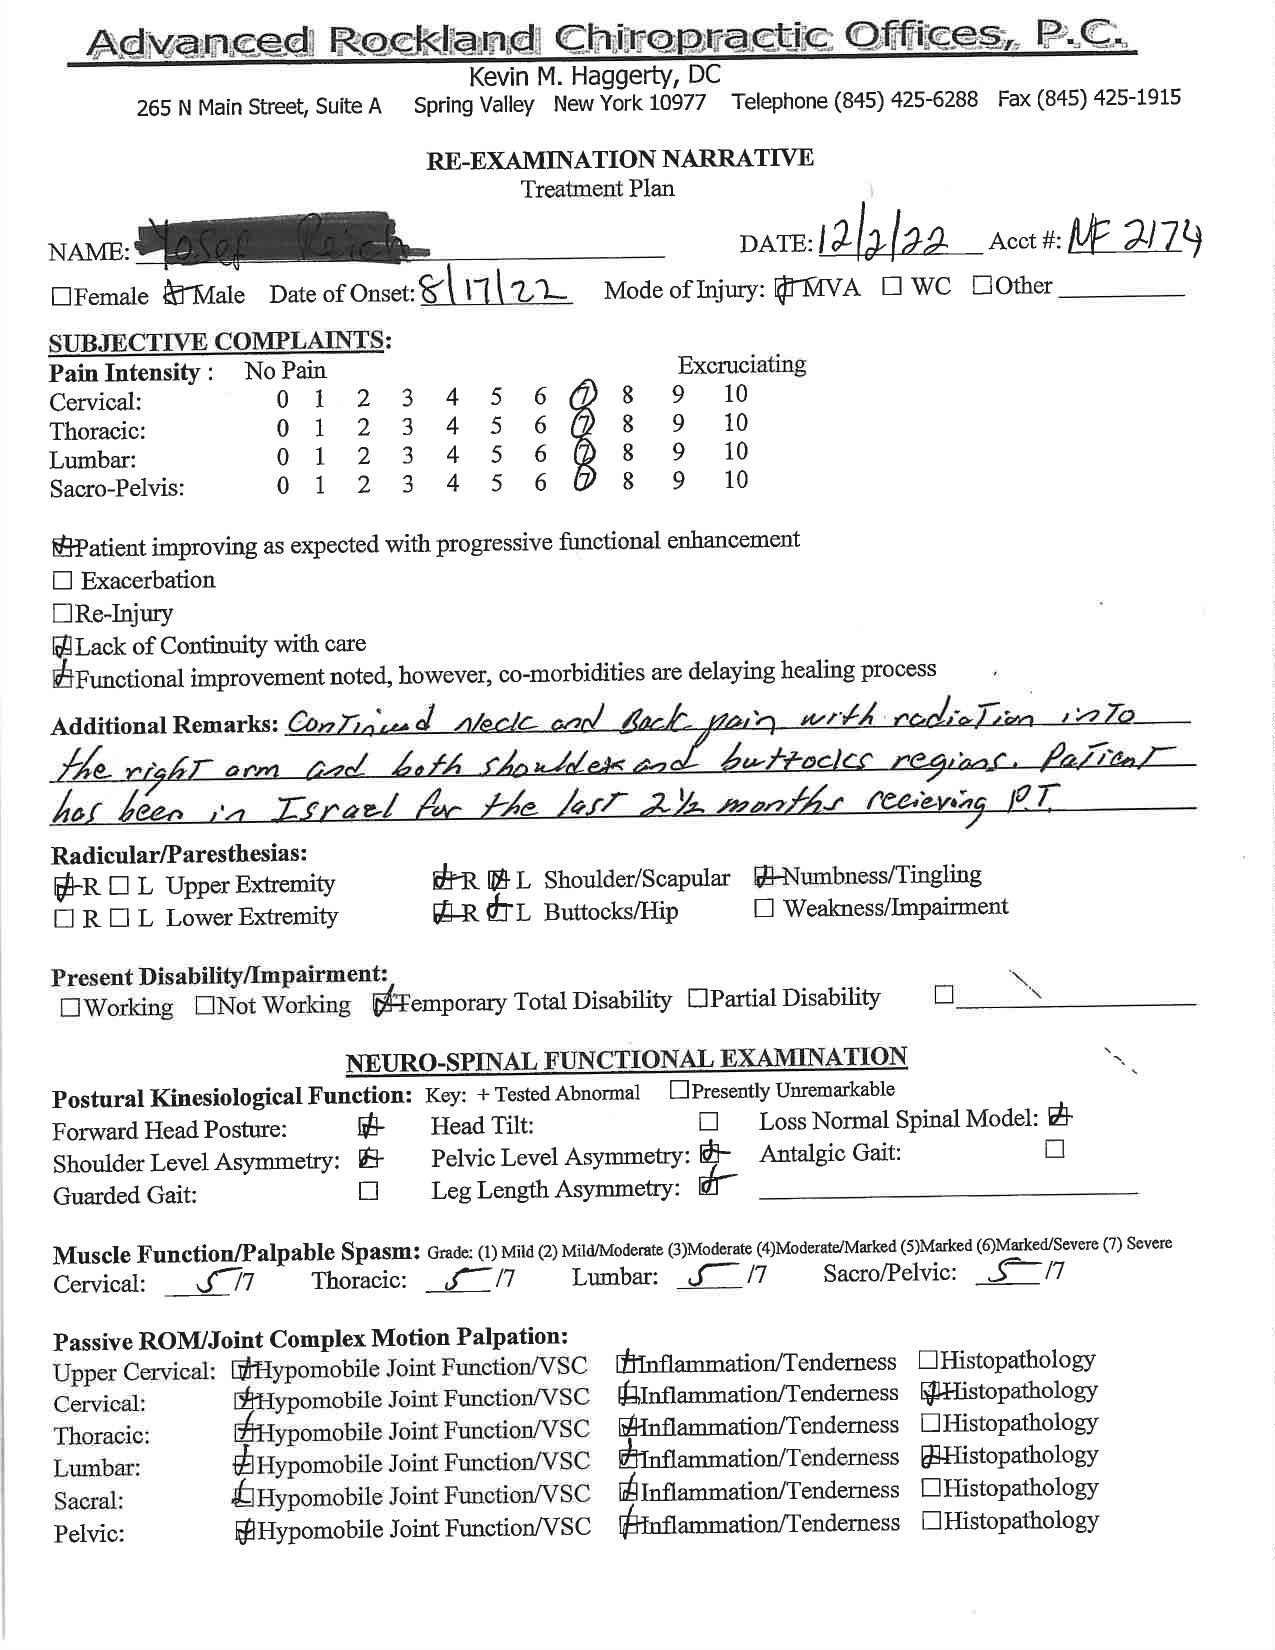 Advanced Rockland Chiropractic Offices, P.C.
Kevin M. Haggerty, DC
265 N Main Street, Suite A Spring Valley New York 10977 Telephone (845) 425-6288 Fax (845) 425-1915
RE-EXAMINATION NARRATIVE
Treatment Plan
NAME: DATE: 12/2/22 Acct #: NF 2174
☐Female ☑Male Date of Onset: 8/17/22 Mode of Injury: ☑MVA ☐ WC ☐Other
SUBJECTIVE COMPLAINTS:
Pain Intensity : No Pain Excruciating
Cervical: 0 1 2 3 4 5 6 7 8 9 10
Thoracic: 0 1 2 3 4 5 6 7 8 9 10
Lumbar: 0 1 2 3 4 5 6 7 8 9 10
Sacro-Pelvis: 0 1 2 3 4 5 6 7 8 9 10
☑Patient improving as expected with progressive functional enhancement
☐ Exacerbation
☐Re-Injury
☑Lack of Continuity with care
☑Functional improvement noted, however, co-morbidities are delaying healing process
Additional Remarks: Continued Neck and Back pain with radiation into
the right arm and both shoulders and buttocks regions. Patient
has been in Israel for the last 2 1/2 months recieving P.T.
Radicular/Paresthesias:
☑R ☐ L Upper Extremity ☑R ☑ L Shoulder/Scapular ☑Numbness/Tingling
☐ R ☐ L Lower Extremity ☑R ☑L Buttocks/Hip ☐ Weakness/Impairment
Present Disability/Impairment:
☐Working ☐Not Working ☑Temporary Total Disability ☐Partial Disability ☐
NEURO-SPINAL FUNCTIONAL EXAMINATION
Postural Kinesiological Function: Key: + Tested Abnormal ☐Presently Unremarkable
Forward Head Posture: ☑ Head Tilt: ☐ Loss Normal Spinal Model: ☑
Shoulder Level Asymmetry: ☑ Pelvic Level Asymmetry: ☑ Antalgic Gait: ☐
Guarded Gait: ☐ Leg Length Asymmetry: ☑
Muscle Function/Palpable Spasm: Grade: (1) Mild (2) Mild/Moderate (3)Moderate (4)Moderate/Marked (5)Marked (6)Marked/Severe (7) Severe
Cervical: 5/7 Thoracic: 5/7 Lumbar: 5/7 Sacro/Pelvic: 5/7
Passive ROM/Joint Complex Motion Palpation:
Upper Cervical: ☑Hypomobile Joint Function/VSC ☑Inflammation/Tenderness ☐Histopathology
Cervical: ☑Hypomobile Joint Function/VSC ☑Inflammation/Tenderness ☑Histopathology
Thoracic: ☑Hypomobile Joint Function/VSC ☑Inflammation/Tenderness ☐Histopathology
Lumbar: ☑Hypomobile Joint Function/VSC ☑Inflammation/Tenderness ☑Histopathology
Sacral: ☑Hypomobile Joint Function/VSC ☑Inflammation/Tenderness ☐Histopathology
Pelvic: ☑Hypomobile Joint Function/VSC ☑Inflammation/Tenderness ☐Histopathology